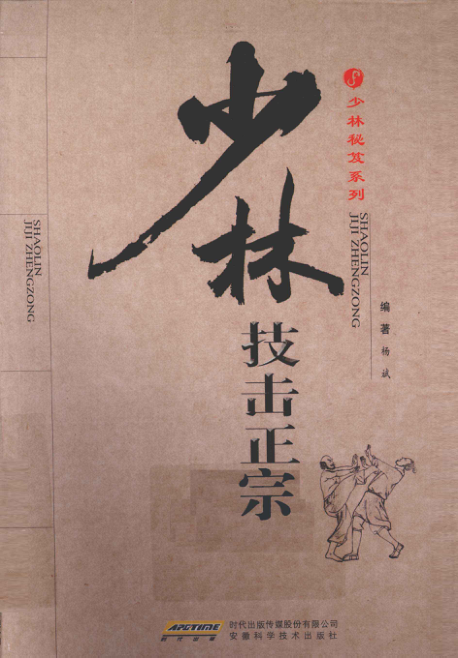 少林
技击正宗
少林秘笈系列
SHAOLIN
JIJI ZHENGZONG
编著 杨斌
SHAOLIN
JIJI ZHENGZONG
ARCTIME
时代出版
时代出版传媒股份有限公司
安徽科学技术出版社